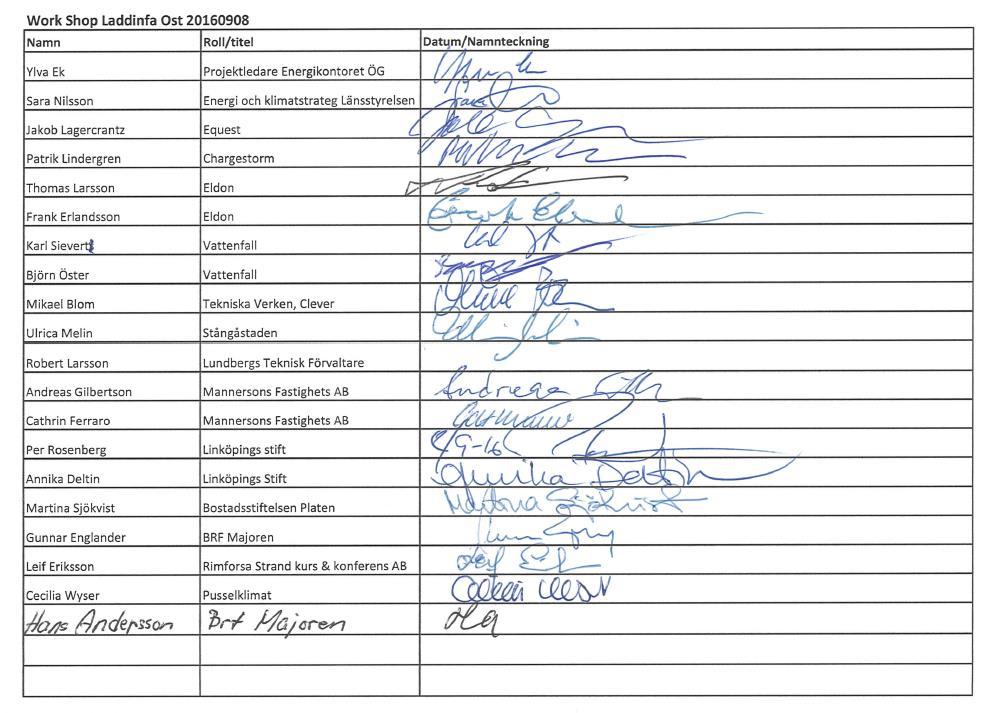 Work Shop Laddinfa Ost 20160908
Namn Roll/titel Datum/Namnteckning
Ylva Ek Projektledare Energikontoret ÖG
Sara Nilsson Energi och klimatstrateg Länsstyrelsen
Jakob Lagercrantz Equest
Patrik Lindergren Chargestorm
Thomas Larsson Eldon
Frank Erlandsson Eldon
Karl Sievert Vattenfall
Björn Öster Vattenfall
Mikael Blom Tekniska Verken, Clever
Ulrica Melin Stångåstaden
Robert Larsson Lundbergs Teknisk Förvaltare
Andreas Gilbertson Mannersons Fastighets AB Andreas
Cathrin Ferraro Mannersons Fastighets AB
Per Rosenberg Linköpings stift 8/9-16
Annika Deltin Linköpings Stift Annika Deltin
Martina Sjökvist Bostadsstiftelsen Platen Martina Sjökvist
Gunnar Englander BRF Majoren
Leif Eriksson Rimforsa Strand kurs & konferens AB
Cecilia Wyser Pusselklimat
Hans Andersson Brf Majoren HA